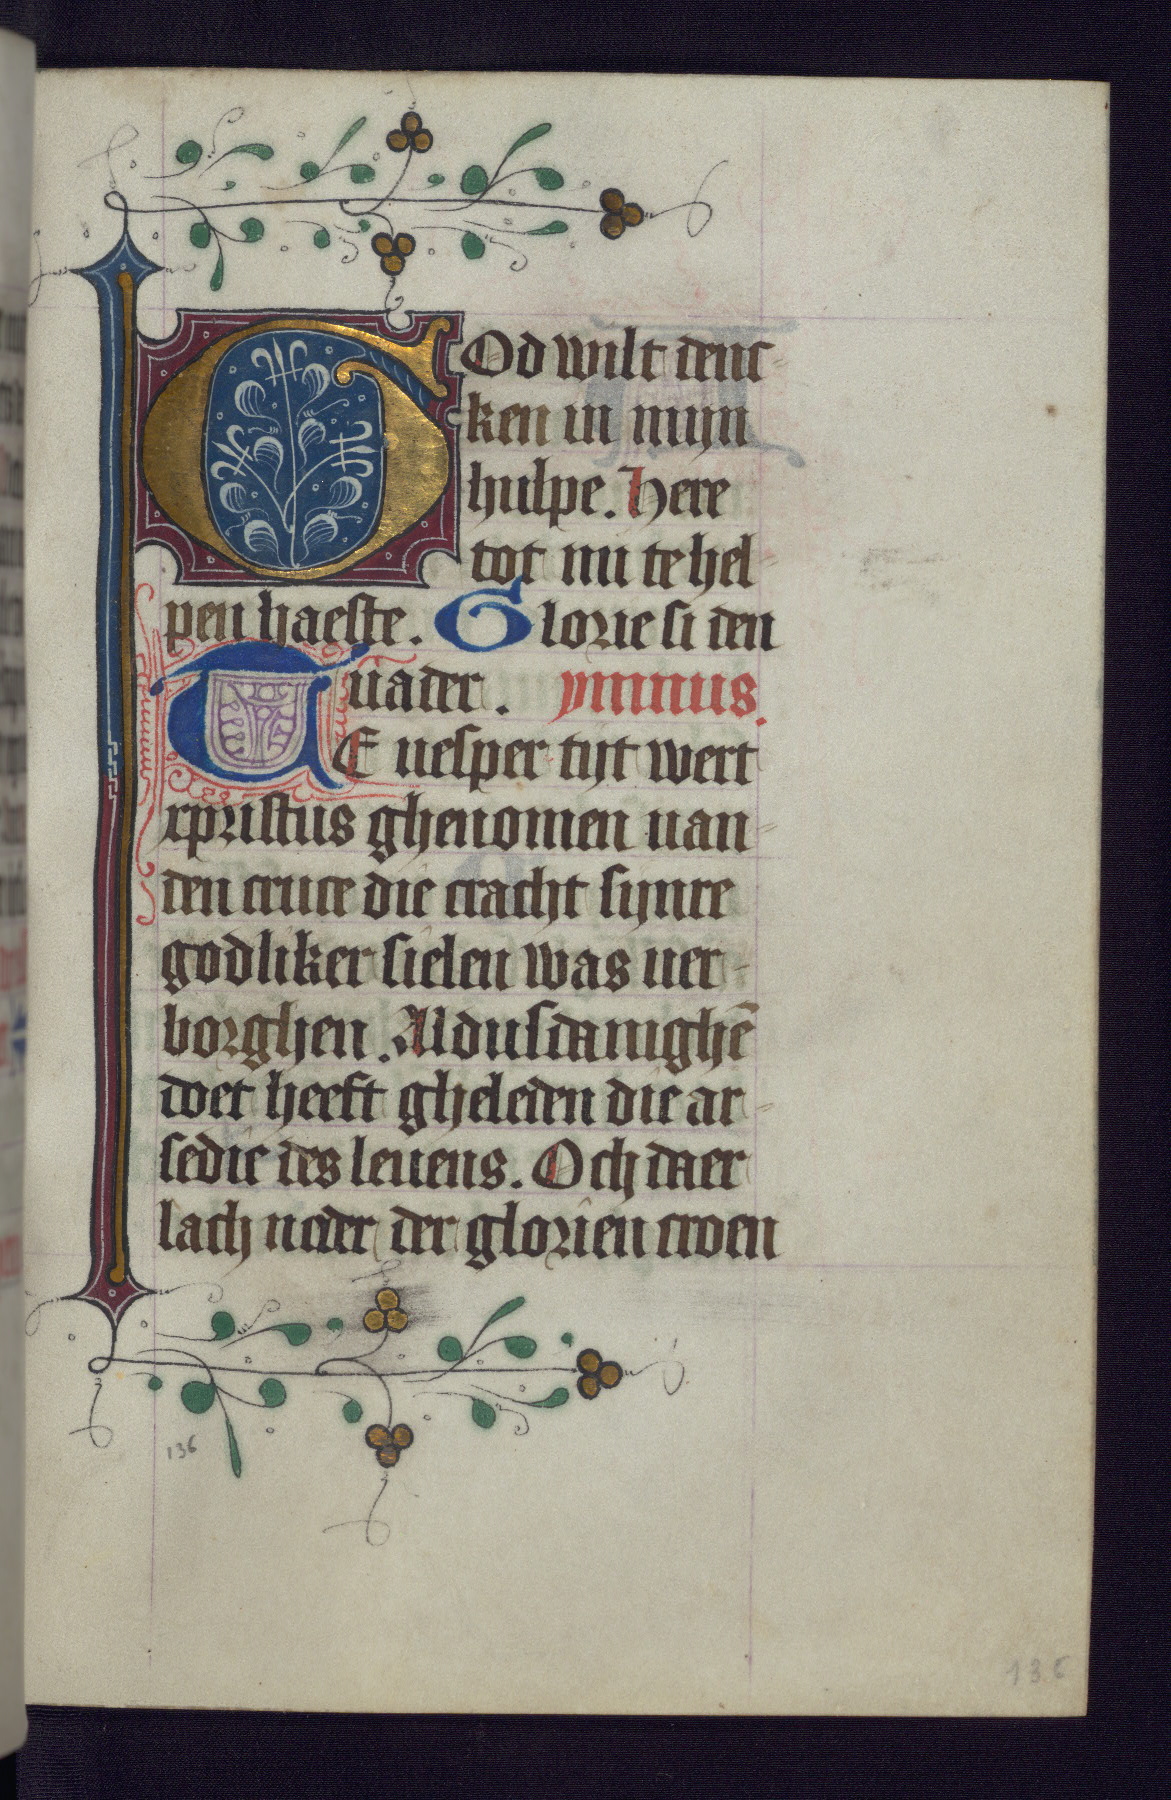 God wilt denc-
ken in mijn
hulpe. Here
tot mi te hel-
pen haeste. Glorie si den
vader. ymnus.
TE vesper tijt wert
xpristus ghenomen van
den cruce die cracht sijnre
godliker sielen was ver-
borghen. Aldusdanighē
doet heeft gheleden die ar-
sedie des levens. Och daer
lach neder der glorien croen
136
136